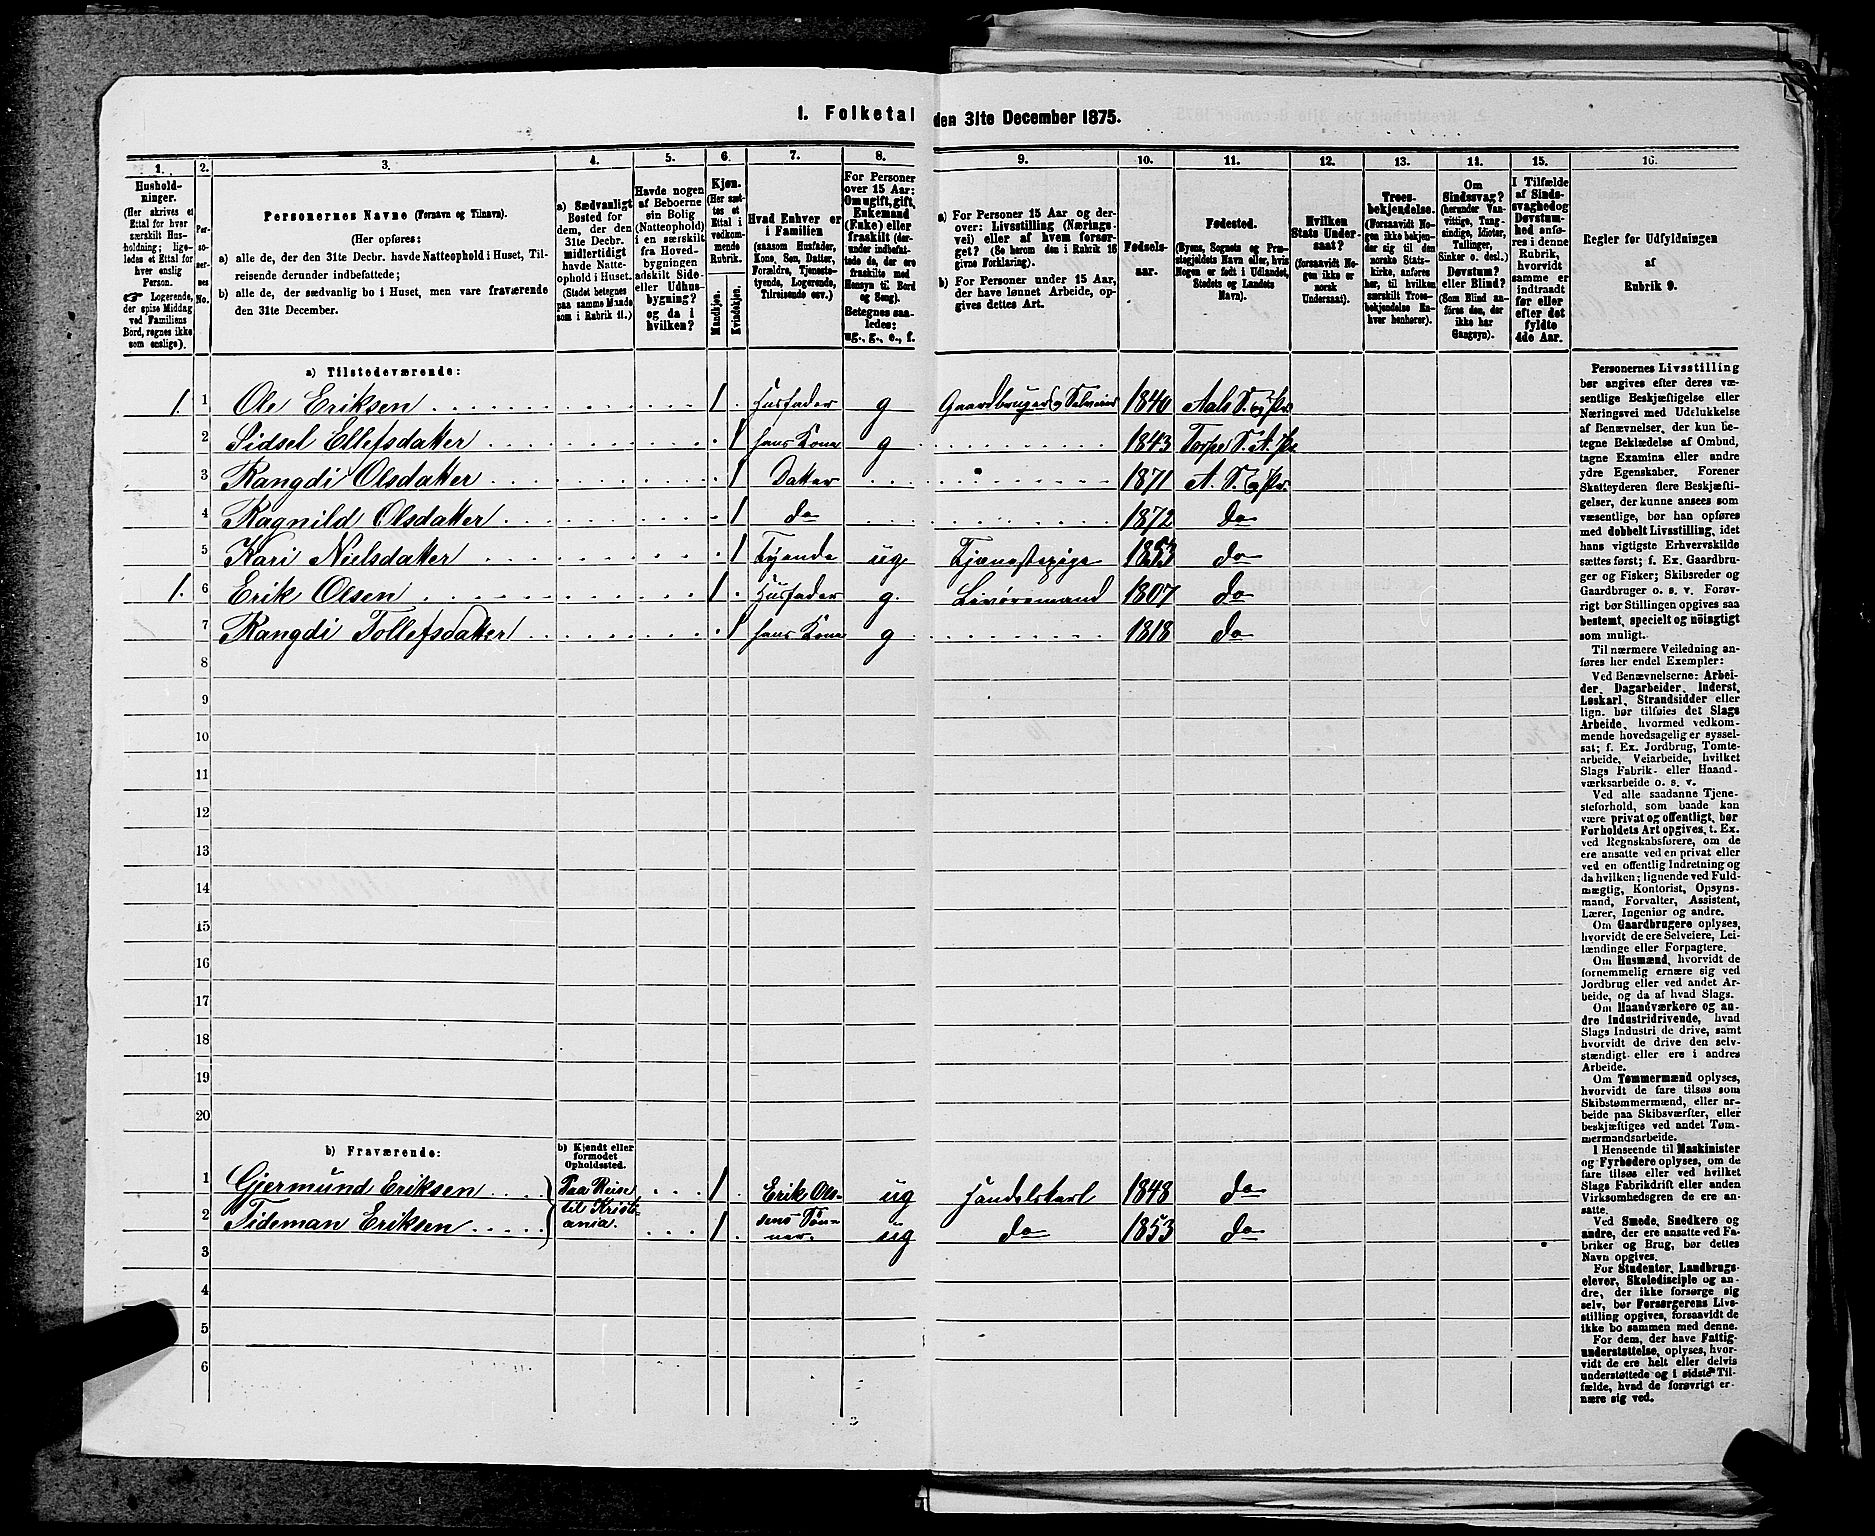 1. Folketal den 31te December 1875.
1. 2. 3. 4. 5. 6. 7. 8. 9. 10. 11. 12. 13. 11. 15. 16.
Hushold-
ninger.
(Her skrives et
Ettal for hver
særskilt Hus-
holdning; lige-
ledes et Ettal for
hver enslig
Person.
☞ Logerende,
der spise Middag
ved Familiens
Bord, regnes ikke
som enslige).
Per-
so-
ner-
nes
No.
Personernes Navne (Fornavn og Tilnavn).
(Her opføres:
a) alle de, der den 31te Decbr. havde Natteophold i Huset, Til-
reisende derunder indbefattede;
b) alle de, der sædvanlig bo i Huset, men vare fraværende
den 31te December.
a) Sædvanligt
Bosted for
dem, der den
31te Decbr.
midlertidigt
havde Natte-
ophold i Huset.
(Stedet betegnes
paa samme Maade
som i Rubrik 11.)
Havde nogen
af Beboerne
sin Bolig
(Natteophold)
i en særskilt
fra Hoved-
bygningen
adskilt Side-
eller Udhus-
bygning?
og da i
hvilken?
Kjøn.
(Her sæt-
tes et
Ettal i
vedkom-
mende
Rubrik.
Mandkjøn.
Kvindekjøn.
Hvad Enhver er
i Familien
(saasom Husfader,
Kone, Søn, Datter,
Forældre, Tjeneste-
tyende, Logerende,
Tilreisende osv.)
For Personer
over 15 Aar:
Om ugift, gift,
Enkemand
(Enke) eller
fraskilt (der-
under indbefat-
tede de, der ere
fraskilte med
Hensyn til Bord
og Seng).
Betegnes saa-
ledes:
ug., g., e., f.
a) For Personer 15 Aar og der-
over: Livsstilling (Nærings-
vei) eller af hvem forsør-
get? (Se herom den i Rubrik 16
givne Forklaring).
b) For Personer under 15 Aar,
der have lønnet Arbeide, op-
gives dettes Art.
Fødsels-
aar.
Fødested.
(Byens, Sognets og Præ-
stegjeldets Navn eller, hvis
Nogen er født i Udlandet,
Stedets og Landets
Navn).
Hvilken
Stats Under-
saat?
(forsaavidt No-
gen ikke er
norsk
Undersaat).
Troes-
bekjendelse.
(Forsaavidt No-
gen ikke bekjen-
der sig til den
norske Stats-
kirke, anføres
her, til hvilken
særskilt Troes-
bekjendelse En-
hver henhører).
Om
Sindssvag?
(herunder Van-
vittige, Tung-
sindige, Idioter,
Tullinger,
Sinker o. desl.)
Døvstum?
eller Blind?
(Som Blind an-
føres den, der
ikke har
Gangsyn).
I Tilfælde
af Sinds-
svaghed og
Døvstum-
hed anfø-
res i denne
Rubrik,
hvorvidt
samme er
indtraadt
før eller
efter det
fyldte
4de Aar.
Regler for Udfyldningen
af
Rubrik 9.
a) Tilstedeværende:
1. 1 Ole Eriksen 1 Husfader g Gaardbruger og Selveier 1840 Aals S. og Pr.
2 Sidsel Ellefsdatter 1 hans Kone g 1843 Torpe S. A. Pr.
3 Rangdi Olsdatter 1 Datter 1871 A. S. og Pr.
4 Ragnild Olsdatter 1 do 1872 do
5 Kari Nielsdatter 1 Tyende ug Tjenestepige 1853 do
1. 6 Erik Olsen 1 Husfader g. Livøresmand 1807 do
7 Rangdi Tollefsdatter 1 hans Kone g 1818 do
8
9
10
11
12
13
14
15
16
17
18
19
20
b) Fraværende:
b) Kjendt eller
formodet
Opholdssted.
1 Gjermund Eriksen Paa Reise 1 Erik Ols- ug Handelskarl 1848 do
til Kristi-
2 Tideman Eriksen ania. 1 sens Søn- ug do 1853 do
ner.
3
4
5
6
Personernes Livsstilling
bør angives efter deres væ-
sentlige Beskjæftigelse eller
Næringsvei med Udelukkelse
af Benævnelser, der kun be-
tegne Beklædelse af Ombud,
tagne Examina eller andre
ydre Egenskaber. Forener
Skatteyderen flere Beskjæfti-
gelser, der kunne ansees som
væsentlige, bør han opføres
med dobbelt Livsstilling, idet
hans vigtigste Erhvervskilde
sættes først; f. Ex. Gaardbru-
ger og Fisker; Skibsreder og
Gaardbruger o. s. v. Forøv-
rigt bør Stillingen opgives saa
bestemt, specielt og nöiagtigt
som muligt.
Til nærmere Veiledning an-
føres her endel Exempler:
Ved Benævnelserne: Arbei-
der, Dagarbeider, Inderst,
Løskarl, Strandsidder eller
lign. bør tilføies det Slags
Arbeide, hvormed vedkom-
mende hovedsagelig er syssel-
sat; f. Ex. Jordbrug, Tomte-
arbeide, Veiarbeide, hvilket
Slags Fabrik- eller Haand-
værksarbeide o. s. v.
Ved alle saadanne Tjene-
steforhold, som baade kan
være privat og offentligt, bør
Forholdets Art opgives, t. Ex.
ved Regnskabsførere, om de
ere ansatte ved en privat eller
ved en offentlig Indretning og
da hvilken; lignende ved Fuld-
mægtig, Kontorist, Opsyns-
mand, Forvalter, Assistent,
Lærer, Ingeniør og andre.
Om Gaardbrugere oplyses,
hvorvidt de ere Selveiere, Lei-
lændinge eller Forpagtere.
Om Husmænd, hvorvidt de
fornemmelig ernære sig ved
Jordbrug eller ved andet Ar-
beide, og da af hvad Slags.
Om Haandværkere og an-
dre Industridrivende, hvad
Slags Industri de drive, samt
hvorvidt de drive den selv-
stændigt eller ere i andres
Arbeide.
Om Tømmermænd oplyses,
hvorvidt de fare tilsøs som
Skibstømmermænd, eller ar-
beide paa Skibsværfter, eller
beskjæftiges ved andet Tøm-
mermandsarbeide.
I Henseende til Maskinister
og Fyrbødere oplyses, om de
fare tilsøs eller ved hvilket
Slags Fabrikdrift eller anden
Virksomhedsgren de ere an-
satte.
Ved Smede, Snedkere og
andre, der ere ansatte ved Fa-
briker og Brug, bør dettes
Navn opgives.
For Studenter, Landbrugs-
elever, Skoledisciple og an-
dre, der ikke forsørge sig
selv, bør Forsørgerens Livs-
stilling opgives, forsaavidt de
ikke bo sammen med denne.
For dem, der have Fattig-
understøttelse, oplyses, hvor-
vidt de ere helt eller delvis
understøttede og i sidste Til-
fælde, hvad de forøvrigt er-
nære sig ved.